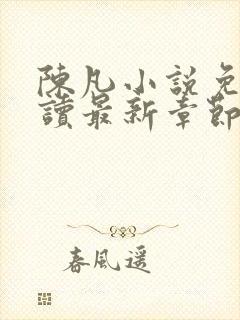 陳凡小說免
讀最新章節
春風遥